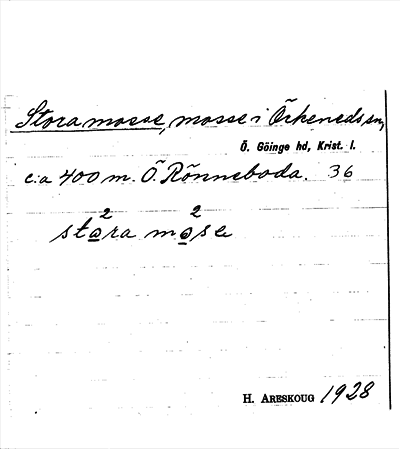 Stora mosse, mosse i Örkeneds sn,
Ö. Göinge hd, Krist. l.
c:a 400 m. Ö. Rönneboda. 36
2 2
stara mose
H. ARESKOUG 1928